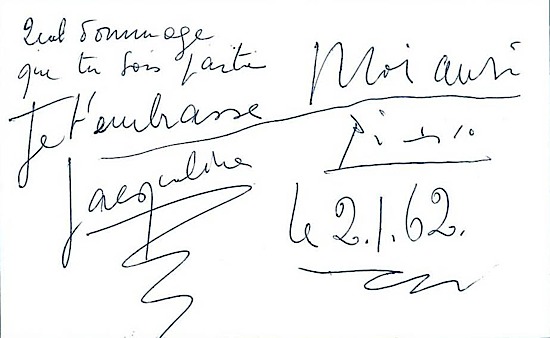 Quel dommage
que tu sois partie
Je t'embrasse
Jacqueline
Moi aussi
Picasso
le 2.1.62.